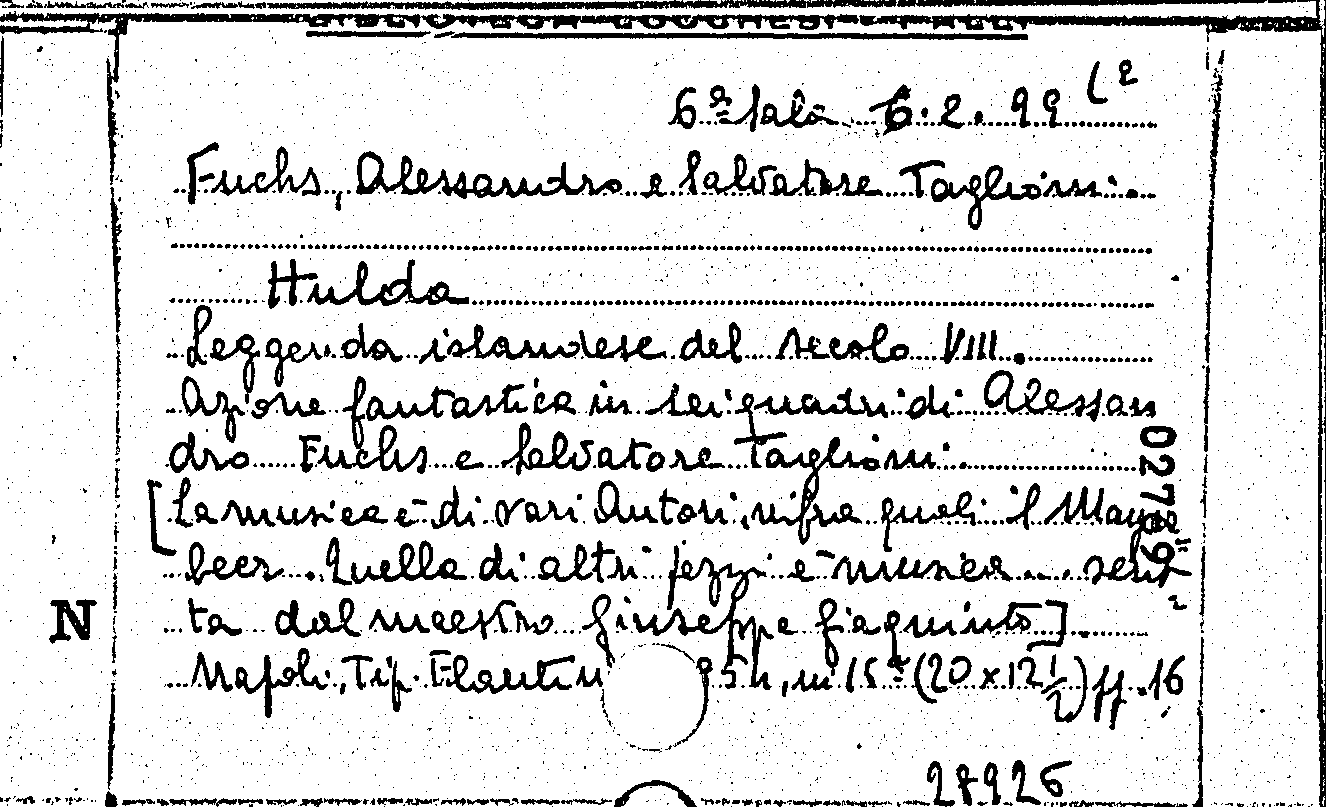 BIBLIOTECA LUCCHESI - PALLI
6ª Sala 6.2.99 (2
Fuchs, Alessandro e Salvatore Taglioni.
Hulda
Leggenda islandese del secolo VIII.
Azione fantastica in sei quadri di Alessan
dro Fuchs e Salvatore Taglioni.
[La musica è di vari Autori, infra quali il Maye
beer. Quella di altri pezzi è musica ... scrit
ta dal maestro Giuseppe Giaquinto].
Napoli, Tip. Flautin 5
(20 x 12 1/2) pp. 16
N
27926